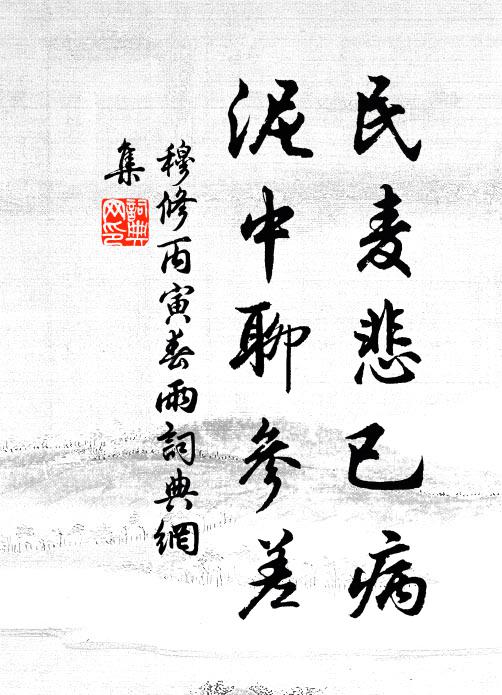 民麦悲已病
泥中聊參差
穆修丙寅春雨詞典網
集
詞典網印